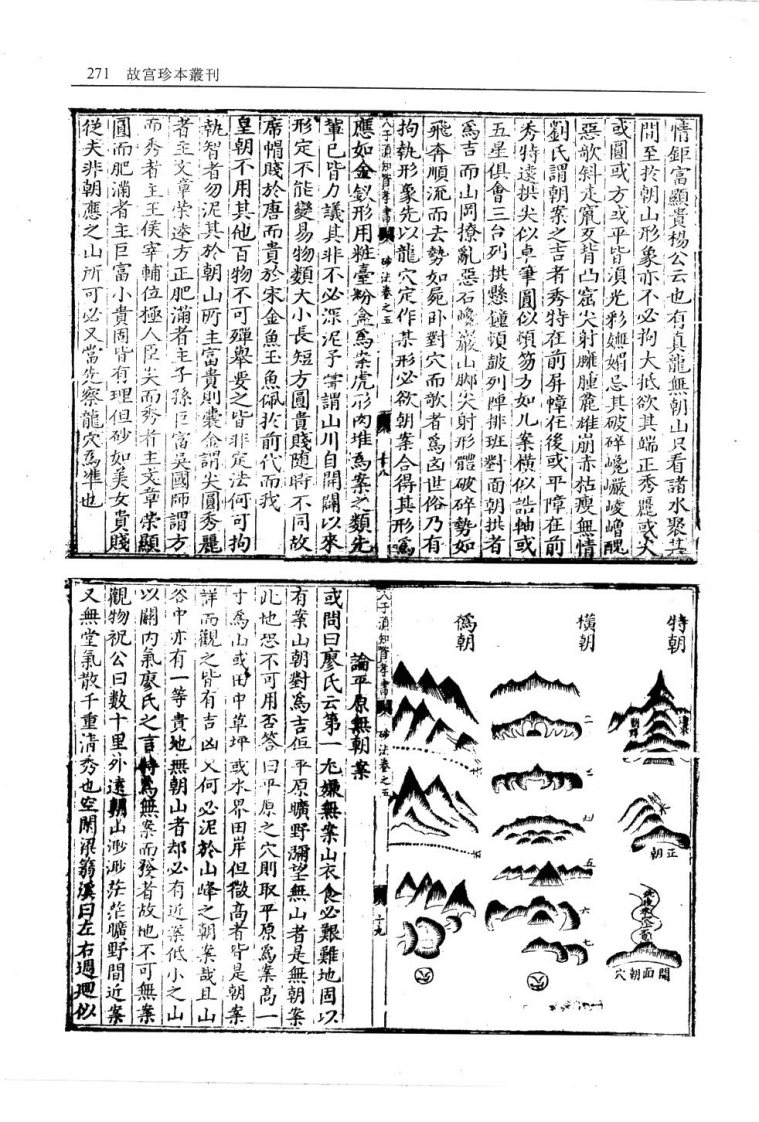 271 故宫珍本叢刊
情鉅富顯貴楊公云也有真龍無朝山只看諸水聚其
間至扵朝山形象亦不必拘大抵欲其端正秀麗或尖
或圓或方或平皆湏光彩嫵媚忌其破碎巉巖崚嶒醜
惡欹斜走竄反背凸窟尖射臃腫麄雄崩赤枯瘦無情
劉氏謂朝案之吉者秀特在前屏幛在後或平障在前
秀特遠拱尖似卓筆圓似頓笏方如几案橫似誥軸或
五星俱會三台列拱懸鐘頓皷列陣排班對面朝拱者
爲吉而山岡撩亂惡石巉巖山脚尖射形體破碎勢如
飛奔順流而去勢如屍卧對穴而欹者爲凶世俗乃有
拘執形象先以龍穴定作某形必欲朝案合得其形爲
人子湏知資孝書 砂法卷之五 十八
應如金釵形用粧臺粉盒爲案虎形肉堆爲案之類先
輩已皆力議其非不必深泥予嘗謂山川自開闢以來
形定不能變易物類大小長短方圓貴賤隨時不同故
席帽賤於唐而貴於宋金魚玉魚佩扵前代而我
皇朝不用其他百物不可殫舉要之皆非定法何可拘
執智者勿泥其於朝山所主富貴則囊金謂尖圓秀麗
者主文章榮達方正肥滿者主子孫巨富吳國師謂方
而秀者主王侯宰輔位極人臣尖而秀者主文章榮顯
圓而肥滿者主巨富小貴固皆有理但砂如美女貴賤
從夫非朝應之山所可必又當先察龍穴爲準也
特朝
正朝
開面朝穴
橫朝
二
三
四
五
六
七
僞朝
人子湏知資孝書 砂法卷之五 十九
論平原無朝案
或問曰廖氏云第一尤嫌無案山衣食必艱難地固以
有案山朝對爲吉但平原曠野彌望無山者是無朝案
此地恐不可用否答曰平原之穴則取平原爲案高一
寸爲山或田中草坪或水界田岸但微高者皆是朝案
詳而觀之皆有吉凶又何必泥於山峰之朝案哉且山
谷中亦有一等貴地無朝山者却必有近案低小之山
以關內氣廖氏之言特爲無案而發者故地不可無案
觀物祝公曰數十里外遠朝山渺渺茫茫曠野間近案
又無堂氣散千重清秀也空閑梁箬溪曰左右週迴似